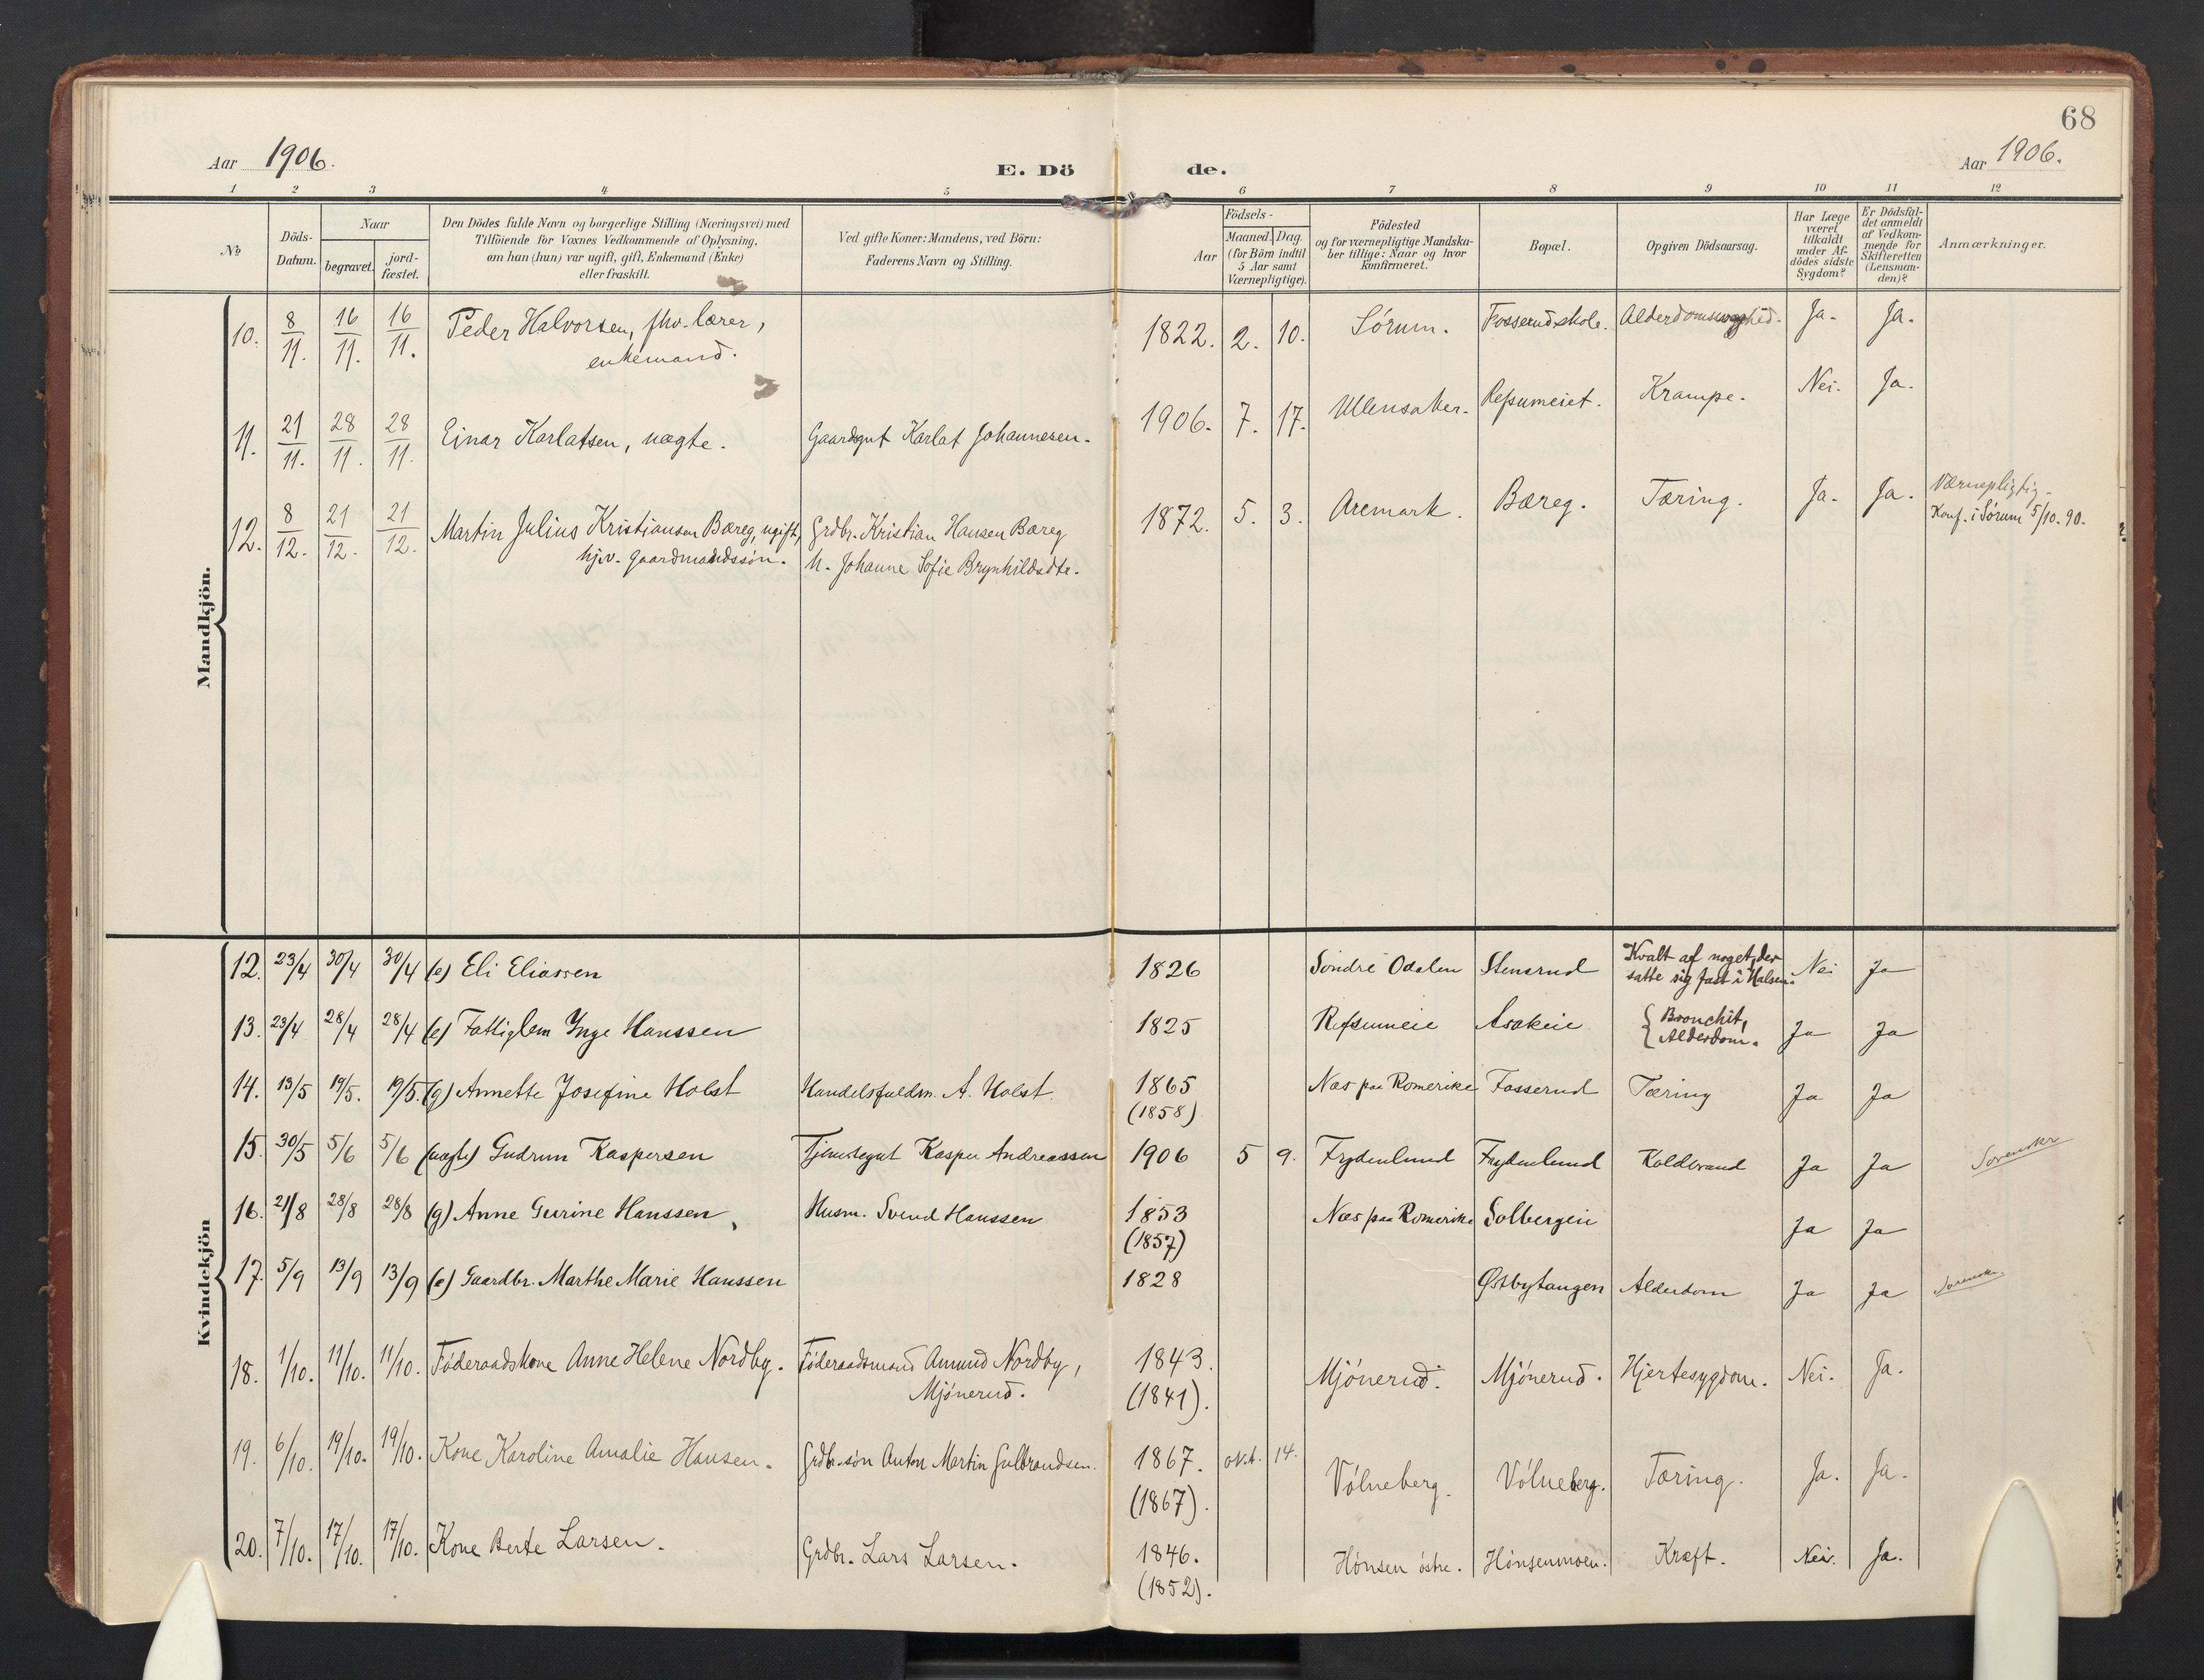 68
Aar 1906.
E. Dö de.
Aar 1906.
1 2 3 4 5 6 7 8 9 10 11 12
No
Döds-Datum.
Naar
begravet.
jord-fæstet.
Den Dödes fulde Navn og borgerlige Stilling (Næringsvei) med
Tilföiende for Voxnes Vedkommende af Oplysning,
om han (hun) var ugift, gift, Enkemand (Enke)
eller fraskilt.
Ved gifte Koner: Mandens, ved Börn:
Faderens Navn og Stilling.
Födsels-
Aar
Maaned. Dag
(for Börn indtil
5 Aar samt
Værnepligtige).
Födested
og for værnepligtige Mandska-
ber tillige: Naar og hvor
konfirmeret.
Bopæl.
Opgiven Dödsaarsag.
Har Læge
været
tilkaldt
under Af-
dödes sidste
Sygdom?
Er Dödsfal-
det anmeldt
af Vedkom-
mende for
Skifteretten
(Lensman-
den)?
Anmærkninger.
Mandkjön.
10. 8/11. 16/11. 16/11. Peder Halvorsen, fhv. lærer, 1822. 2. 10. Sörum. Fosserudskole. Alderdomssvaghed. Ja. Ja.
enkemand.
11. 21/11. 28/11. 28/11. Einar Karlatsen, uægte. Gaardsgut Karlat Johannesen. 1906. 7. 17. Ullensaker. Refsumeiet. Krampe. Nei. Ja.
12. 8/12. 21/12. 21/12. Martin Julius Kristiansen Bæreg, ugift, Grdbr. Kristian Hansen Bæreg 1872. 5. 3. Aremark. Bæreg. Tæring. Ja. Ja. Værnepligtig.
hjv. gaardmandssön. M. Johanne Sofie Brynhildsdtr. Konf. i Sörum 5/10. 90.
Kvindekjön
12. 23/4 30/4 30/4 (e) Eli Eliassen 1826 Söndre Odalen Stensrud Kvalt af noget, der Nei Ja
satte sig fast i Halsen.
13. 23/4 28/4 28/4 (e) Fattiglem Inge Hanssen 1825 Refsumeie Asakeie Bronchit, Ja Ja
Alderdom.
14. 13/5 19/5. 19/5. (g) Annette Josefine Holst Handelsfuldm. A. Holst. 1865 Næs paa Romerike Fosserud Tæring Ja Ja
(1858)
15. 30/5 5/6 5/6 (uægte) Gudrun Kaspersen Tjenestegut Kasper Andreassen 1906 5 9. Frydenlund Frydenlund Koldbrand Ja Ja
16. 21/8 28/8 28/8 (g) Anne Gurine Hanssen Husm. Svend Hanssen 1853 Næs paa Romerike Solbergeie Ja Ja
(1857)
17. 5/9 13/9 13/9 (e) Gaardbr. Marthe Marie Hanssen 1828 Østbytangen Alderdom Ja Ja
18. 1/10. 11/10. 11/10. Föderaadskone Anne Helene Nordby. Föderaadsmand Amund Nordby, 1843. Mjönerud. Mjönerud. Hjertesygdom. Nei. Ja.
Mjönerud. (1841).
19. 6/10. 19/10. 19/10. Kone Karoline Amalie Hansen. Grdbr.sön Anton Martin Gulbrandsen. 1867. okt. 14. Völneberg. Völneberg. Tæring. Ja. Ja.
(1867).
20. 7/10. 17/10. 17/10. Kone Berte Larsen. Grdbr. Lars Larsen. 1846. Hönsen östre. Hönsenmoen. Kræft. Nei. Ja.
(1852).